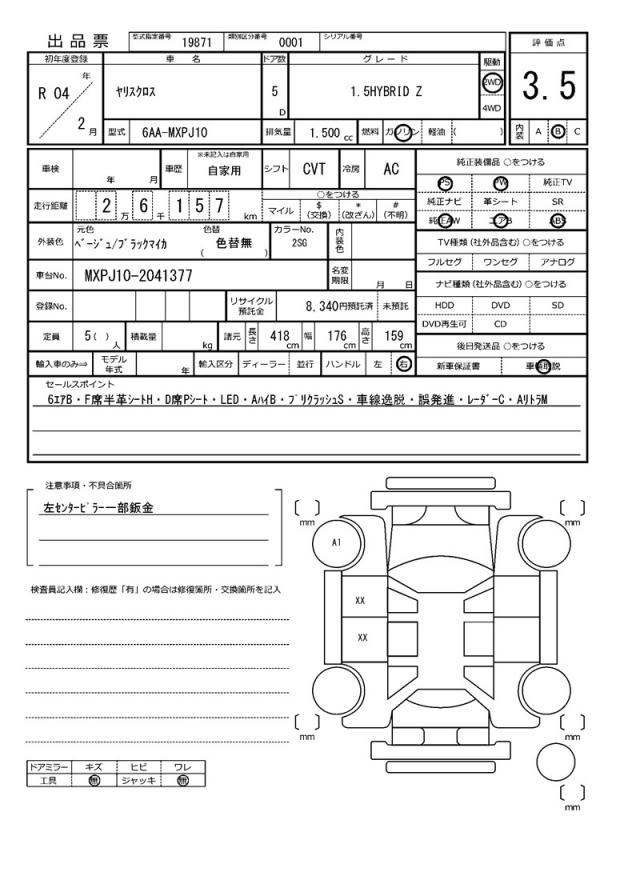 出品票 型式指定番号 19871 類別区分番号 0001 シリアル番号
評価点
3.5
内装 A B C
初年度登録 車名 ドア数 グレード 駆動
R 04 年 2 月 ヤリスクロス 5 D 1.5HYBRID Z 2WD 4WD
型式 6AA-MXPJ10 排気量 1.500 cc 燃料 ガソリン 軽油 ( )
車検 年 月 車歴 ※未記入は自家用 自家用 シフト CVT 冷房 AC
走行距離 2 万 6 千 1 5 7 km ○をつける
マイル $(交換) *(改ざん) #(不明)
外装色 元色 ベージュ/ブラックマイカ 色替 ( 色替無 ) カラーNo. 2SG 内装色
車台No. MXPJ10-2041377 名変期限 月 日
登録No. リサイクル預託金 8,340円預託済 未預託
定員 5( )人 積載量 kg 諸元 長さ 418 cm 幅 176 cm 高さ 159 cm
輸入車のみ⇒ モデル年式 年 輸入区分 ディーラー 並行 ハンドル 左 右
純正装備品 ○をつける
PS PW 純正TV
純正ナビ 革シート SR
純正AW エアB ABS
TV種類(社外品含む)○をつける
フルセグ ワンセグ アナログ
ナビ種類(社外品含む)○をつける
HDD DVD SD
DVD再生可 CD
後日発送品 ○をつける
新車保証書 車輌取説
セールスポイント
6エアB・F席半革シートH・D席Pシート・LED・AハイB・プリクラッシュS・車線逸脱・誤発進・レーダーC・AリトラM
注意事項・不具合箇所
左センターピラー一部鈑金
検査員記入欄:修復歴「有」の場合は修復箇所・交換箇所を記入
ドアミラー キズ ヒビ ワレ
工具 無 ジャッキ 無
[ ] mm [ ] mm
A1
XX
XX
[ ] mm [ ] mm
[ ] mm